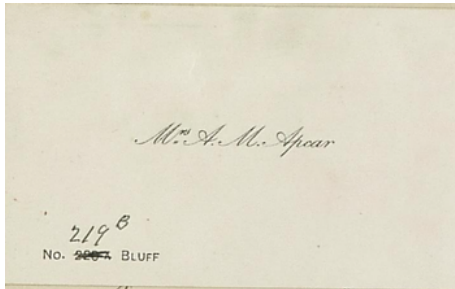 Mrs. A. M. Apcar
219 B
No. BLUFF